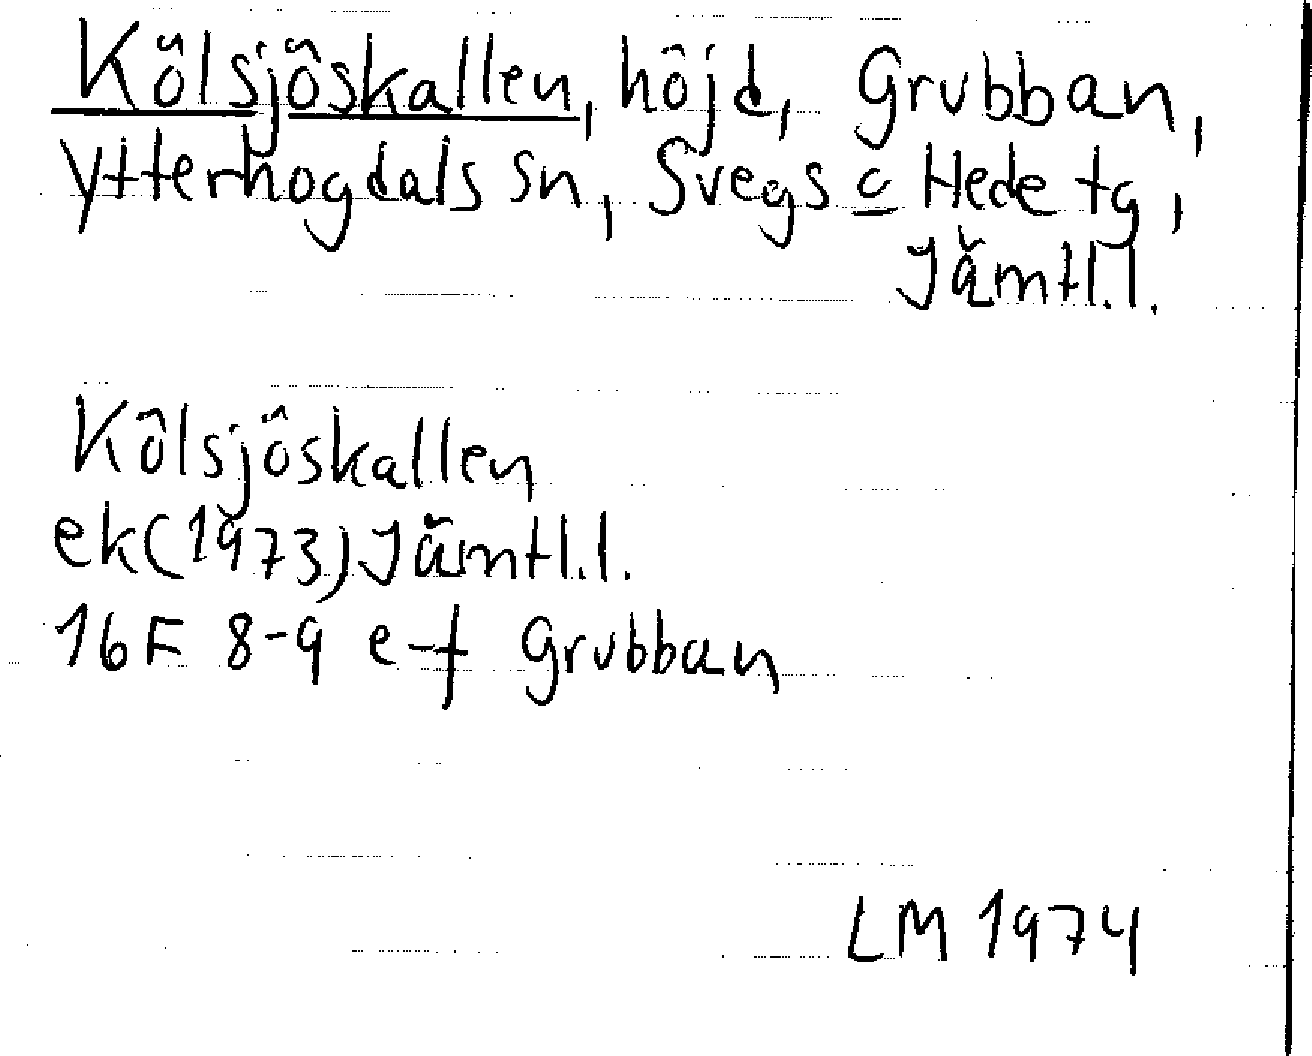 Kölsjöskallen, höjd, Grubban,
Ytterhogdals sn, Svegs o Hede tg,
Jämtl.l.
Kölsjöskallen
ek(1973) Jämtl.l.
16F 8-9 e-f Grubban
LM 1974